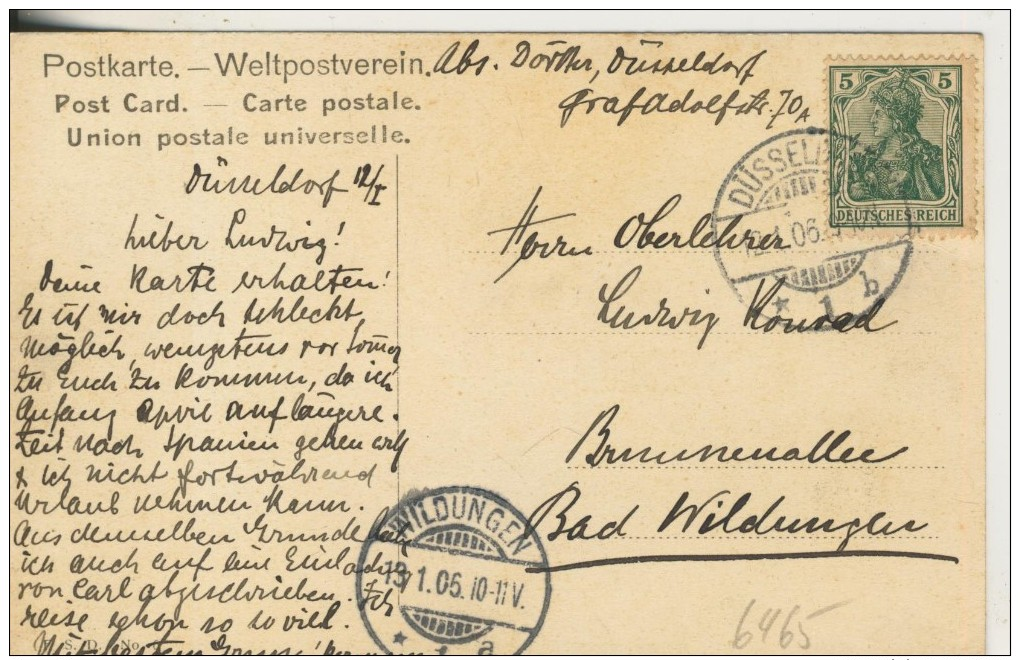 Postkarte. — Weltpostverein.
Post Card. — Carte postale.
Union postale universelle.
Abs. Dörther, Düsseldorf
Graf Adolfstr. 70A
5 5
DEUTSCHES REICH
DÜSSELD
12.1.06.
* 1 b
Düsseldorf 12/I
Lieber Ludwig!
Deine Karte erhalten!
Es ist mir doch schlecht
möglich, wenigstens vor Sommer
zu Euch zu kommen, da ich
Anfang April auf längere
Zeit nach Spanien gehen will
& ich nicht fortwährend
Urlaub nehmen kann.
Aus demselben Grunde habe
ich auch auf eine Einlad
von Carl abgeschrieben. Ich
reise schon so so viel.
Mit bestem Gruss!
Herrn Oberlehrer
Ludwig Konrad
Brunnenallee
Bad Wildungen
WILDUNGEN
13.1.06. 10-11V.
* 1 a
6465